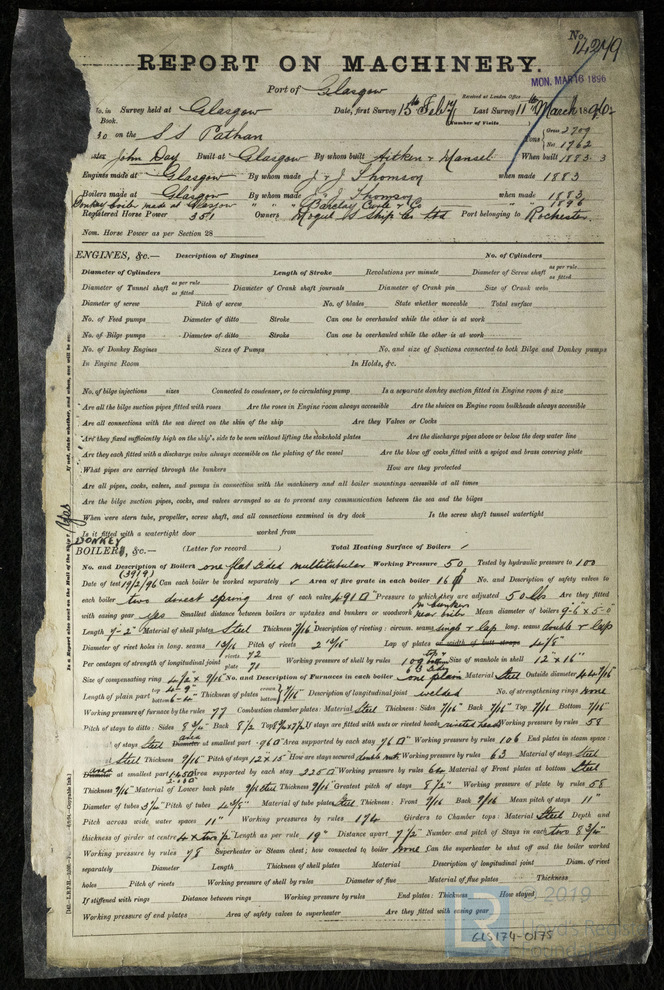 No. 14279
REPORT ON MACHINERY.
MON. MAR 16 1896
Port of Glasgow
Received at London Office
No. in Survey held at Glasgow Date, first Survey 15th Feby Last Survey 11th March 1896
Book. (Number of Visits
30 on the S.S. Pathan Tons Gross 2709
Net 1762
Master John Day Built at Glasgow By whom built Aitken & Mansel When built 1883. 3
Engines made at Glasgow By whom made J & J Thomson when made 1883
Boilers made at Glasgow By whom made J & J Thomson when made 1883
Donkey boiler made at Glasgow " " " Barclay Curle & Co " " 1896
Registered Horse Power 351 Owners Mogul S Ship Co Ltd Port belonging to Rochester.
Nom. Horse Power as per Section 28
ENGINES, &c.— Description of Engines No. of Cylinders
Diameter of Cylinders Length of Stroke Revolutions per minute Diameter of Screw shaft as per rule as fitted
Diameter of Tunnel shaft as per rule as fitted Diameter of Crank shaft journals Diameter of Crank pin Size of Crank webs
Diameter of screw Pitch of screw No. of blades State whether moveable Total surface
No. of Feed pumps Diameter of ditto Stroke Can one be overhauled while the other is at work
No. of Bilge pumps Diameter of ditto Stroke Can one be overhauled while the other is at work
No. of Donkey Engines Sizes of Pumps No. and size of Suctions connected to both Bilge and Donkey pumps
In Engine Room In Holds, &c.
No. of bilge injections sizes Connected to condenser, or to circulating pump Is a separate donkey suction fitted in Engine room & size
Are all the bilge suction pipes fitted with roses Are the roses in Engine room always accessible Are the sluices on Engine room bulkheads always accessible
Are all connections with the sea direct on the skin of the ship Are they Valves or Cocks
Are they fixed sufficiently high on the ship's side to be seen without lifting the stokehold plates Are the discharge pipes above or below the deep water line
Are they each fitted with a discharge valve always accessible on the plating of the vessel Are the blow off cocks fitted with a spigot and brass covering plate
What pipes are carried through the bunkers How are they protected
Are all pipes, cocks, valves, and pumps in connection with the machinery and all boiler mountings accessible at all times
Are the bilge suction pipes, cocks, and valves arranged so as to prevent any communication between the sea and the bilges
When were stern tube, propeller, screw shaft, and all connections examined in dry dock Is the screw shaft tunnel watertight
Is it fitted with a watertight door worked from
DONKEY
BOILERS, &c.— (Letter for record ) Total Heating Surface of Boilers
No. and Description of Boilers one flat sided multitubular Working Pressure 50 Tested by hydraulic pressure to 100
(3919)
Date of test 19/2/96 Can each boiler be worked separately Area of fire grate in each boiler 16 □ No. and Description of safety valves to
each boiler two direct spring Area of each valve 4.91 □" Pressure to which they are adjusted 50 lbs Are they fitted
with easing gear yes Smallest distance between boilers or uptakes and bunkers or woodwork no bunkers near boiler Mean diameter of boilers 9'-6" x 5'-0"
Length 7'-2" Material of shell plates Steel Thickness 7/16 Description of riveting: circum. seams single & lap long. seams double & lap
Diameter of rivet holes in long. seams 13/16 Pitch of rivets 2 13/16 Lap of plates or width of butt straps 4 1/8"
Per centages of strength of longitudinal joint rivets 72 plate 71 Working pressure of shell by rules Size of manhole in shell 12" x 16"
Size of compensating ring 4 1/2 x 9/16 No. and Description of Furnaces in each boiler one plain Material Steel Outside diameter
Length of plain part top bottom Thickness of plates crown bottom 7/16 Description of longitudinal joint welded No. of strengthening rings none
Working pressure of furnace by the rules 77 Combustion chamber plates: Material Steel Thickness: Sides 7/16 Back 7/16 Top 7/16 Bottom 7/16
Pitch of stays to ditto: Sides 8 3/4 Back 8 1/2 Top If stays are fitted with nuts or riveted heads riveted heads Working pressure by rules 58
of stays Steel area Diameter at smallest part .96 □" Area supported by each stay 76 □" Working pressure by rules 106 End plates in steam space:
Steel Thickness 9/16 Pitch of stays 12" x 15" How are stays secured double nuts Working pressure by rules 63 Material of stays Steel
area Diameter at smallest part Area supported by each stay 225 □" Working pressure by rules 64 Material of Front plates at bottom Steel
Thickness 9/16 Material of Lower back plate Steel Thickness 9/16 Greatest pitch of stays 8 1/2" Working pressure of plate by rules 58
Diameter of tubes Pitch of tubes Material of tube plates Steel Thickness: Front 9/16 Back 9/16 Mean pitch of stays 11"
Pitch across wide water spaces 11" Working pressures by rules 174 Girders to Chamber tops: Material Steel Depth and
thickness of girder at centre 4 x two 1/2 Length as per rule 19" Distance apart 7 1/2" Number and pitch of Stays in each two 8 3/4"
Working pressure by rules 78 Superheater or Steam chest; how connected to boiler none Can the superheater be shut off and the boiler worked
separately Diameter Length Thickness of shell plates Material Description of longitudinal joint Diam. of rivet
holes Pitch of rivets Working pressure of shell by rules Diameter of flue Material of flue plates Thickness
If stiffened with rings Distance between rings Working pressure by rules End plates: Thickness How stayed
Working pressure of end plates Area of safety valves to superheater Are they fitted with easing gear
© 2019
LR
GLS174-0175